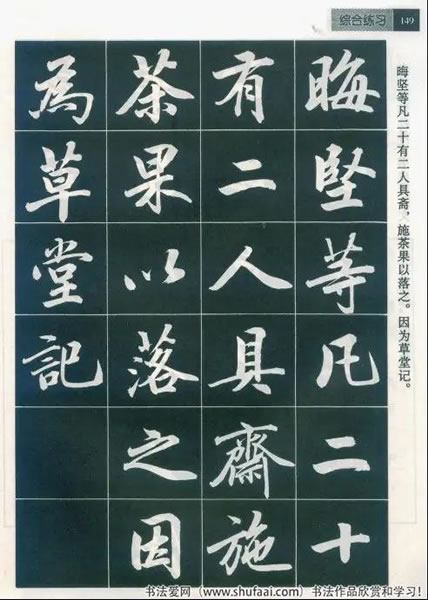 综合练习 149
晦坚等凡二十有二人具斋，施茶果以落之。因为草堂记。
晦堅等凡二十
有二人具齋施
茶果以落之因
為草堂記
书法爱网（www.shufaai.com）书法作品欣赏和学习！